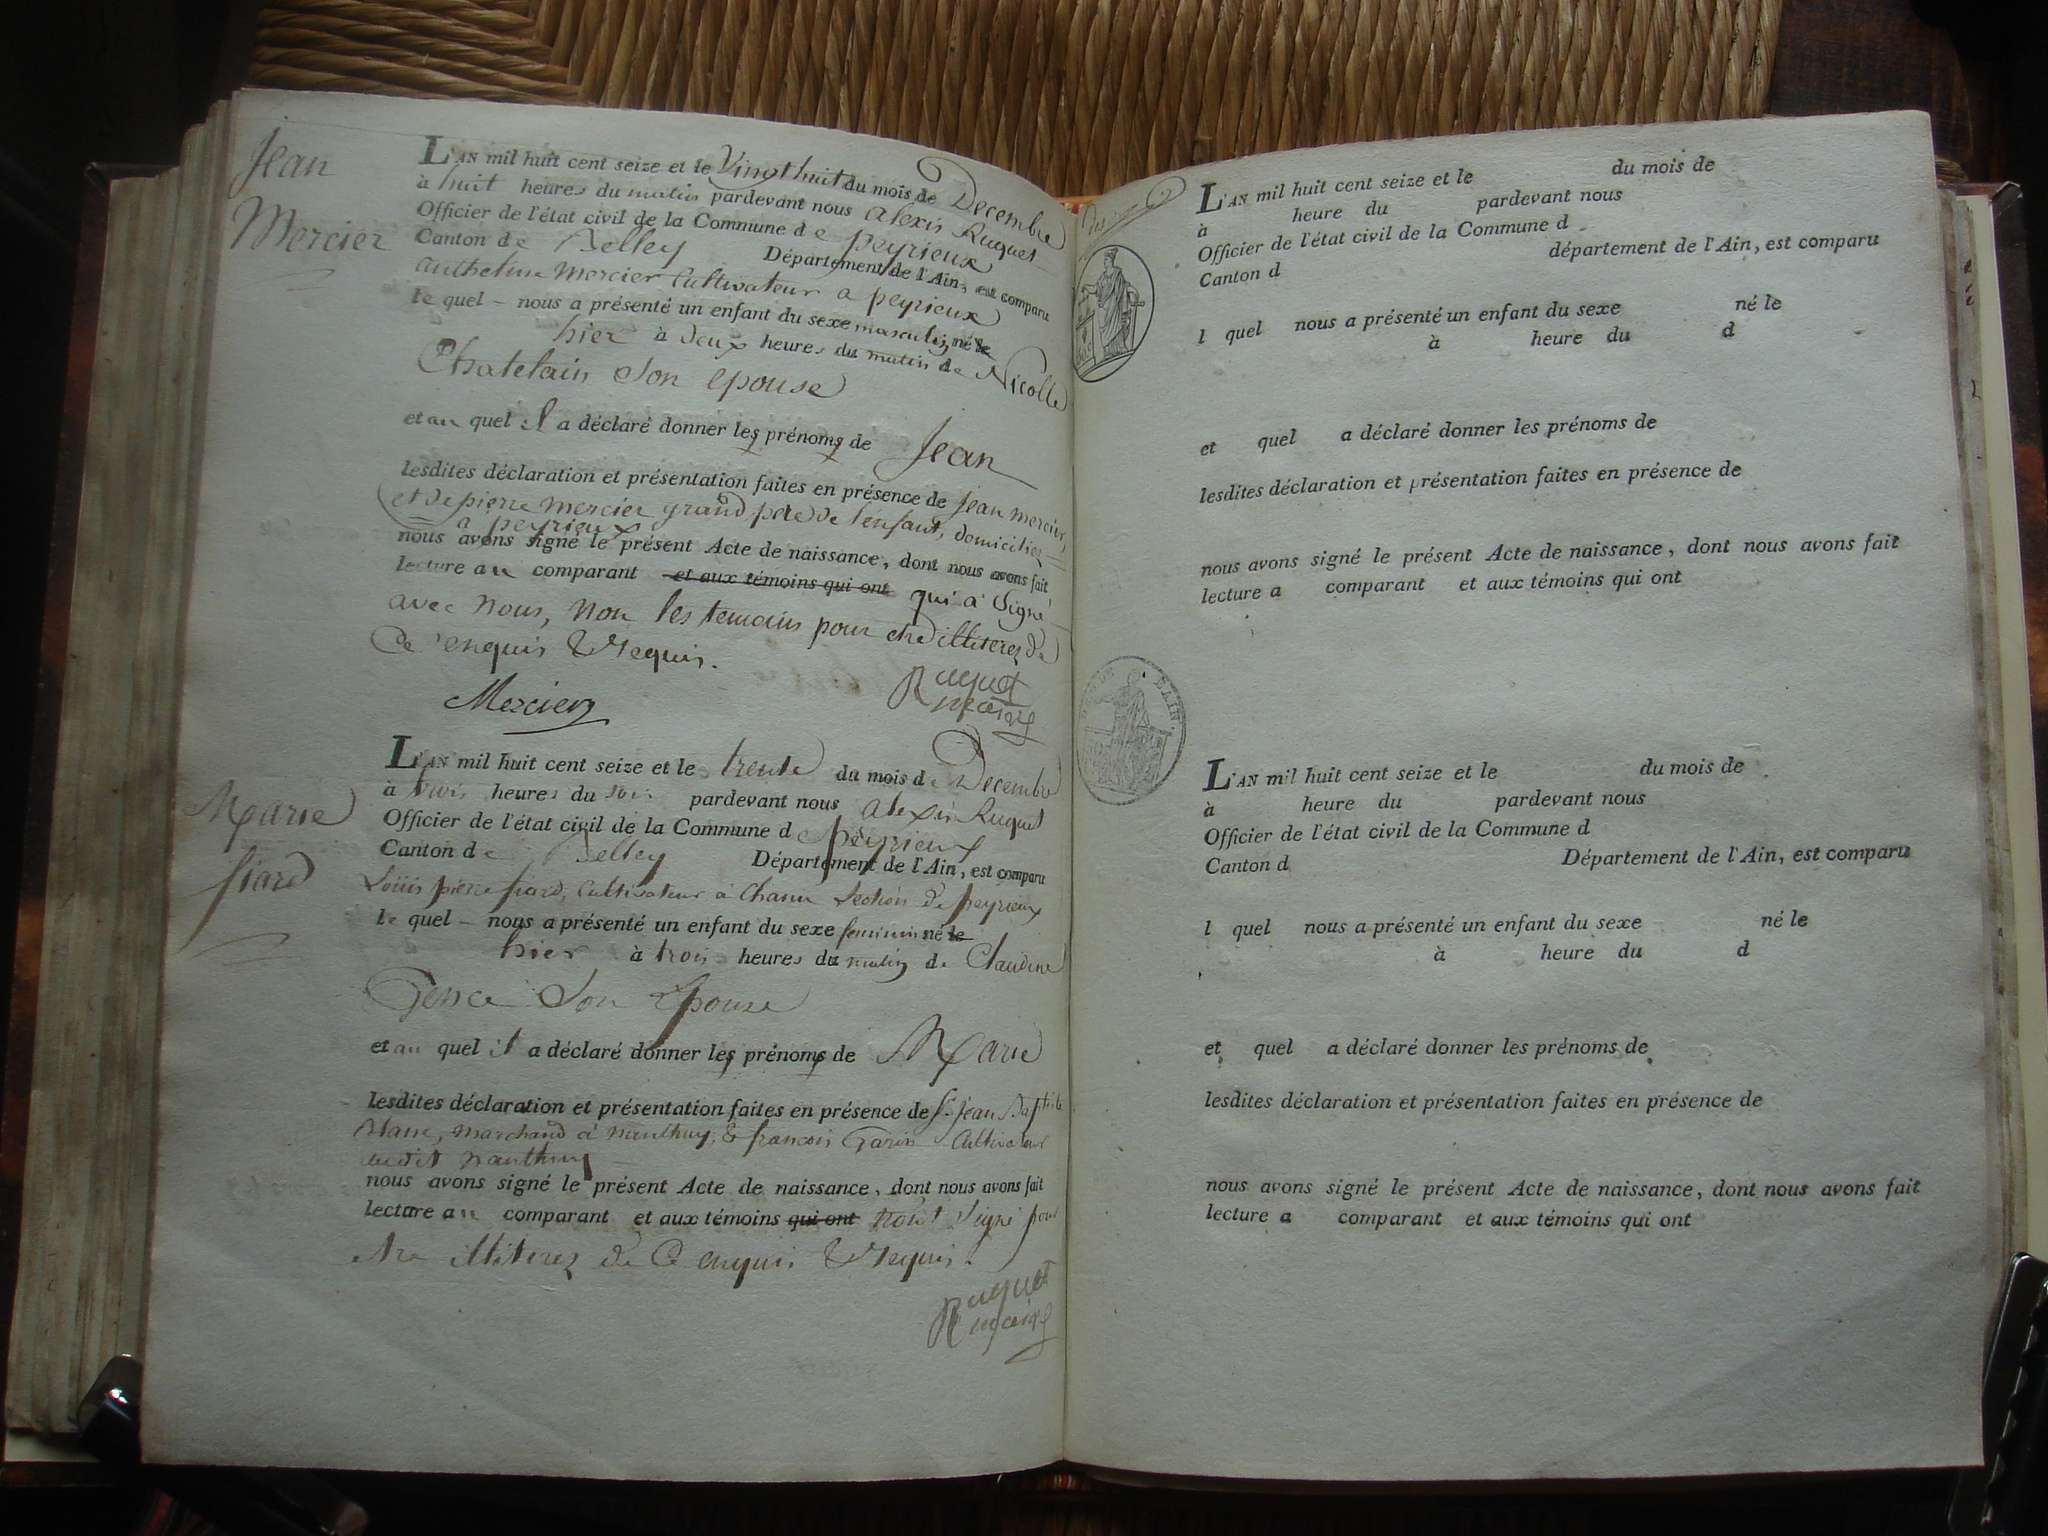 Jean
Mercier
L'AN mil huit cent seize et le Vingt huit du mois de Decembre
à huit heures du matin pardevant nous alexis Ruquet
Officier de l'état civil de la Commune de peyrieux
Canton de Belley Département de l'Ain, est comparu
anthelme Mercier Cultivateur a peyrieux
le quel – nous a présenté un enfant du sexe masculin né le
hier à deux heures du matin de Nicolle
Chatelain son epouse
et au quel il a déclaré donner les prénoms de Jean
lesdites déclaration et présentation faites en présence de Jean mercier,
et de pierre mercier grand pere de l'enfant, domiciliés
a peyrieux
nous avons signé le présent Acte de naissance, dont nous avons fait
lecture au comparant et aux témoins qui ont qui a signé
avec nous, non les temoins pour etre illiterez de
ce enquis & requis.
Mercier
Ruquet
maire
Marie
fiard
L'AN mil huit cent seize et le trente du mois de Decembre
à trois heures du soir pardevant nous alexis Ruquet
Officier de l'état civil de la Commune de peyrieux
Canton de Belley Département de l'Ain, est comparu
Louis pierre fiard, Cultivateur à Chanu Section de peyrieux
le quel – nous a présenté un enfant du sexe feminin né le
hier à trois heures du matin de Claudine
Gence son Epouse
et au quel il a déclaré donner les prénoms de Marie
lesdites déclaration et présentation faites en présence de Sr Jean Baptiste
marchand à nanthuy, & francois Garin Cultivateur
audit nanthuy
nous avons signé le présent Acte de naissance, dont nous avons fait
lecture au comparant et aux témoins qui ont n'ont signé pour
etre illiterez de Ce enquis & requis.
Ruquet
maire
L'AN mil huit cent seize et le du mois de
à heure du pardevant nous
Officier de l'état civil de la Commune d
Canton d département de l'Ain, est comparu
l quel nous a présenté un enfant du sexe né le
à heure du d
et quel a déclaré donner les prénoms de
lesdites déclaration et présentation faites en présence de
nous avons signé le présent Acte de naissance, dont nous avons fait
lecture a comparant et aux témoins qui ont
L'AN mil huit cent seize et le du mois de
à heure du pardevant nous
Officier de l'état civil de la Commune d
Canton d Département de l'Ain, est comparu
l quel nous a présenté un enfant du sexe né le
à heure du d
et quel a déclaré donner les prénoms de
lesdites déclaration et présentation faites en présence de
nous avons signé le présent Acte de naissance, dont nous avons fait
lecture a comparant et aux témoins qui ont